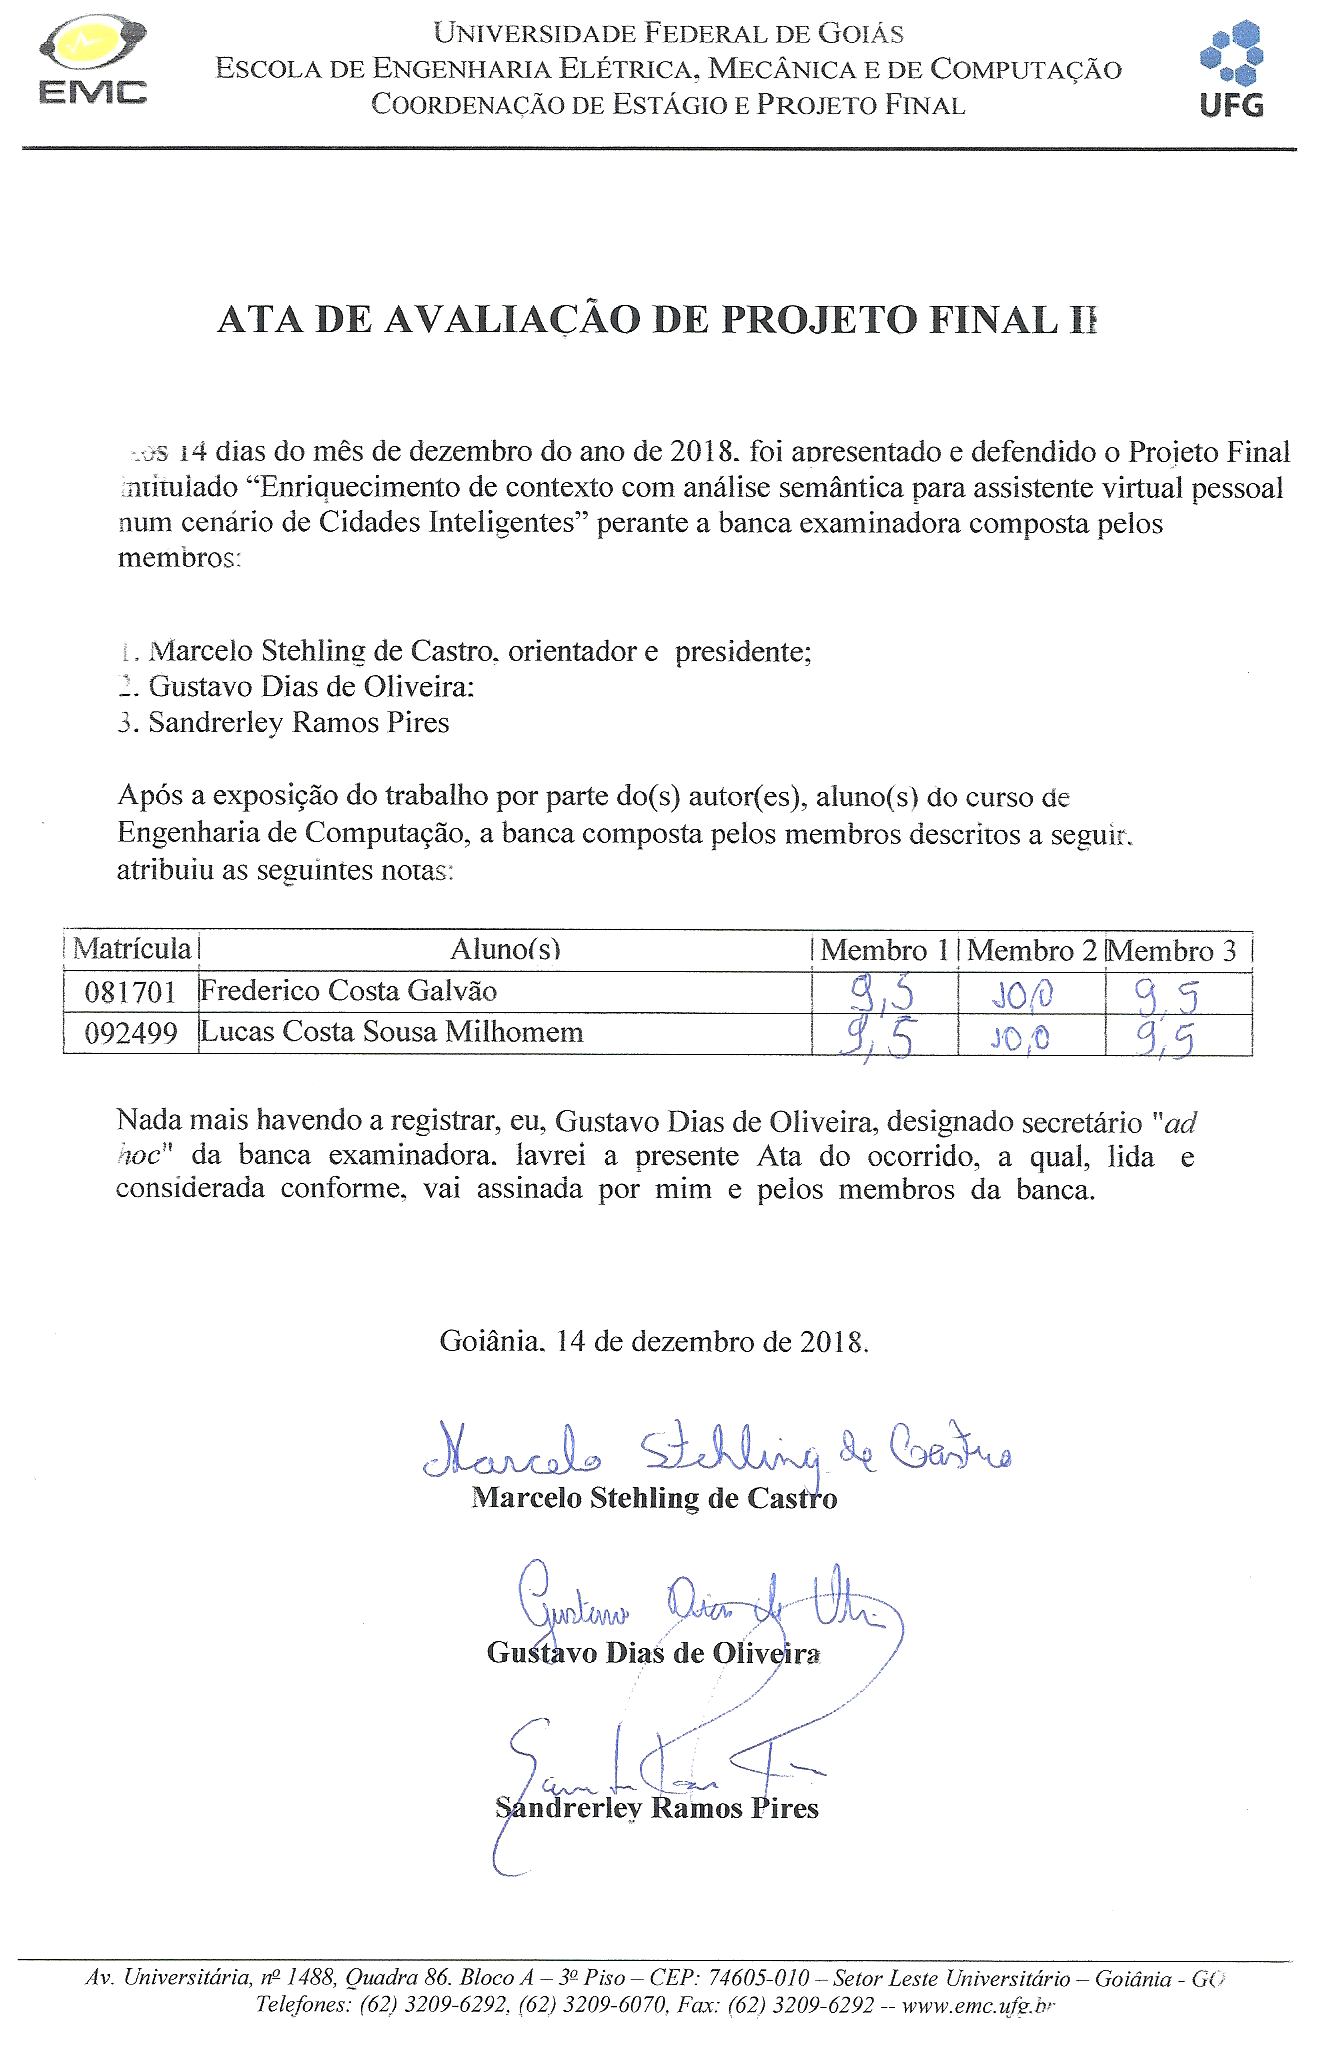 EMC
UNIVERSIDADE FEDERAL DE GOIÁS
ESCOLA DE ENGENHARIA ELÉTRICA, MECÂNICA E DE COMPUTAÇÃO
COORDENAÇÃO DE ESTÁGIO E PROJETO FINAL
UFG
ATA DE AVALIAÇÃO DE PROJETO FINAL II
14 dias do mês de dezembro do ano de 2018. foi apresentado e defendido o Projeto Final
intitulado “Enriquecimento de contexto com análise semântica para assistente virtual pessoal
num cenário de Cidades Inteligentes” perante a banca examinadora composta pelos
membros:
1. Marcelo Stehling de Castro. orientador e presidente;
2. Gustavo Dias de Oliveira:
3. Sandrerley Ramos Pires
Após a exposição do trabalho por parte do(s) autor(es), aluno(s) do curso de
Engenharia de Computação, a banca composta pelos membros descritos a seguir.
atribuiu as seguintes notas:
Matrícula Aluno(s) Membro 1 Membro 2 Membro 3
081701 Frederico Costa Galvão 9,5 10,0 9,5
092499 Lucas Costa Sousa Milhomem 9,5 10,0 9,5
Nada mais havendo a registrar, eu, Gustavo Dias de Oliveira, designado secretário "ad
hoc" da banca examinadora. lavrei a presente Ata do ocorrido, a qual, lida e
considerada conforme, vai assinada por mim e pelos membros da banca.
Goiânia. 14 de dezembro de 2018.
Marcelo Stehling de Castro
Marcelo Stehling de Castro
Gustavo Dias de
Gustavo Dias de Oliveira
Sandrerley Ramos Pires
Av. Universitária, nº 1488, Quadra 86. Bloco A – 3º Piso – CEP: 74605-010 – Setor Leste Universitário – Goiânia - GO
Telefones: (62) 3209-6292, (62) 3209-6070, Fax: (62) 3209-6292 -- www.emc.ufg.br